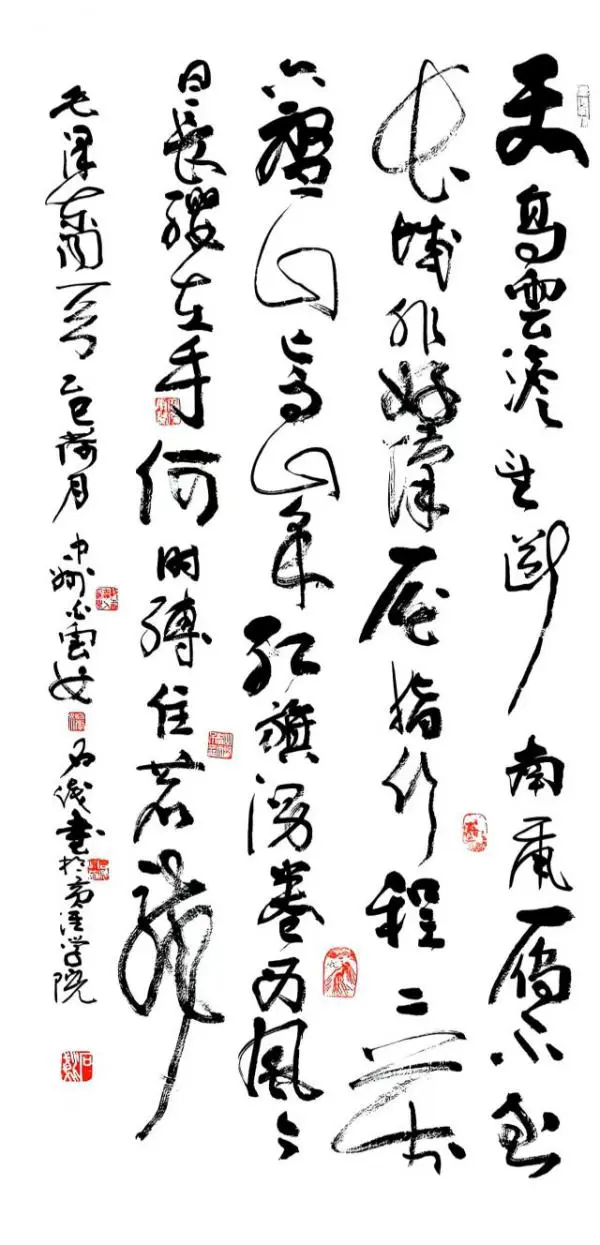 天高雲澹望斷南飛雁不到
长城非好漢屈指行程二万
六盤山上高峯红旗漫卷西風今
日長纓在手何時縛住苍龍
毛澤東词一首乙巳荷月中州石雲書於学院